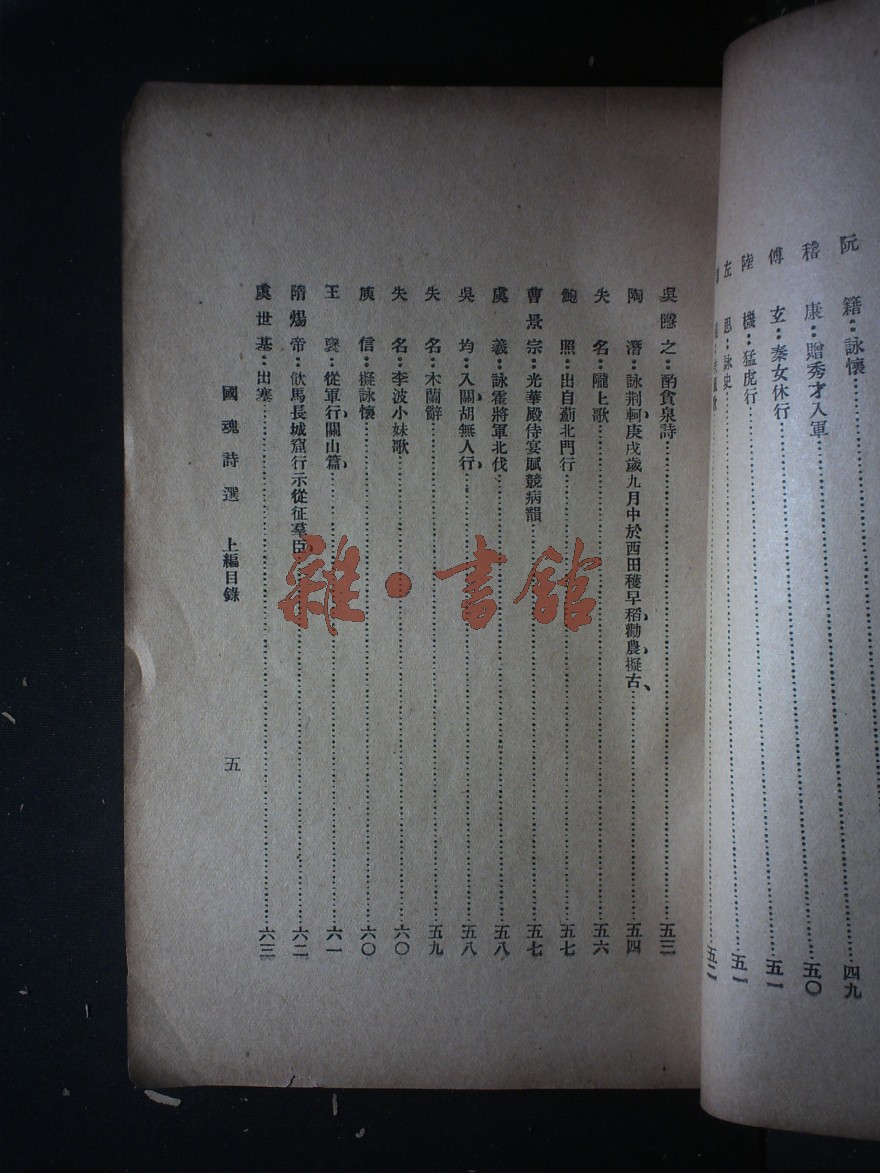 阮籍：詠懷……四九
嵇康：贈秀才入軍……五〇
傅玄：秦女休行……五一
陸機：猛虎行……五一
左思：詠史……五二
吳隱之：酌貪泉詩……五三
陶潛：詠荆軻、庚戌歲九月中於西田穫早稻、勸農、擬古、……五四
失名：隴上歌……五六
鮑照：出自薊北門行……五七
曹景宗：光華殿侍宴賦競病韻……五七
虞羲：詠霍將軍北伐……五八
吳均：入關、胡無人行、……五八
失名：木蘭辭……五九
失名：李波小妹歌……六〇
庾信：擬詠懷……六〇
王褒：從軍行、關山篇、……六一
隋煬帝：飲馬長城窟行示從征羣臣……六二
虞世基：出塞……六三
國魂詩選　上編目錄　五
雜·書館